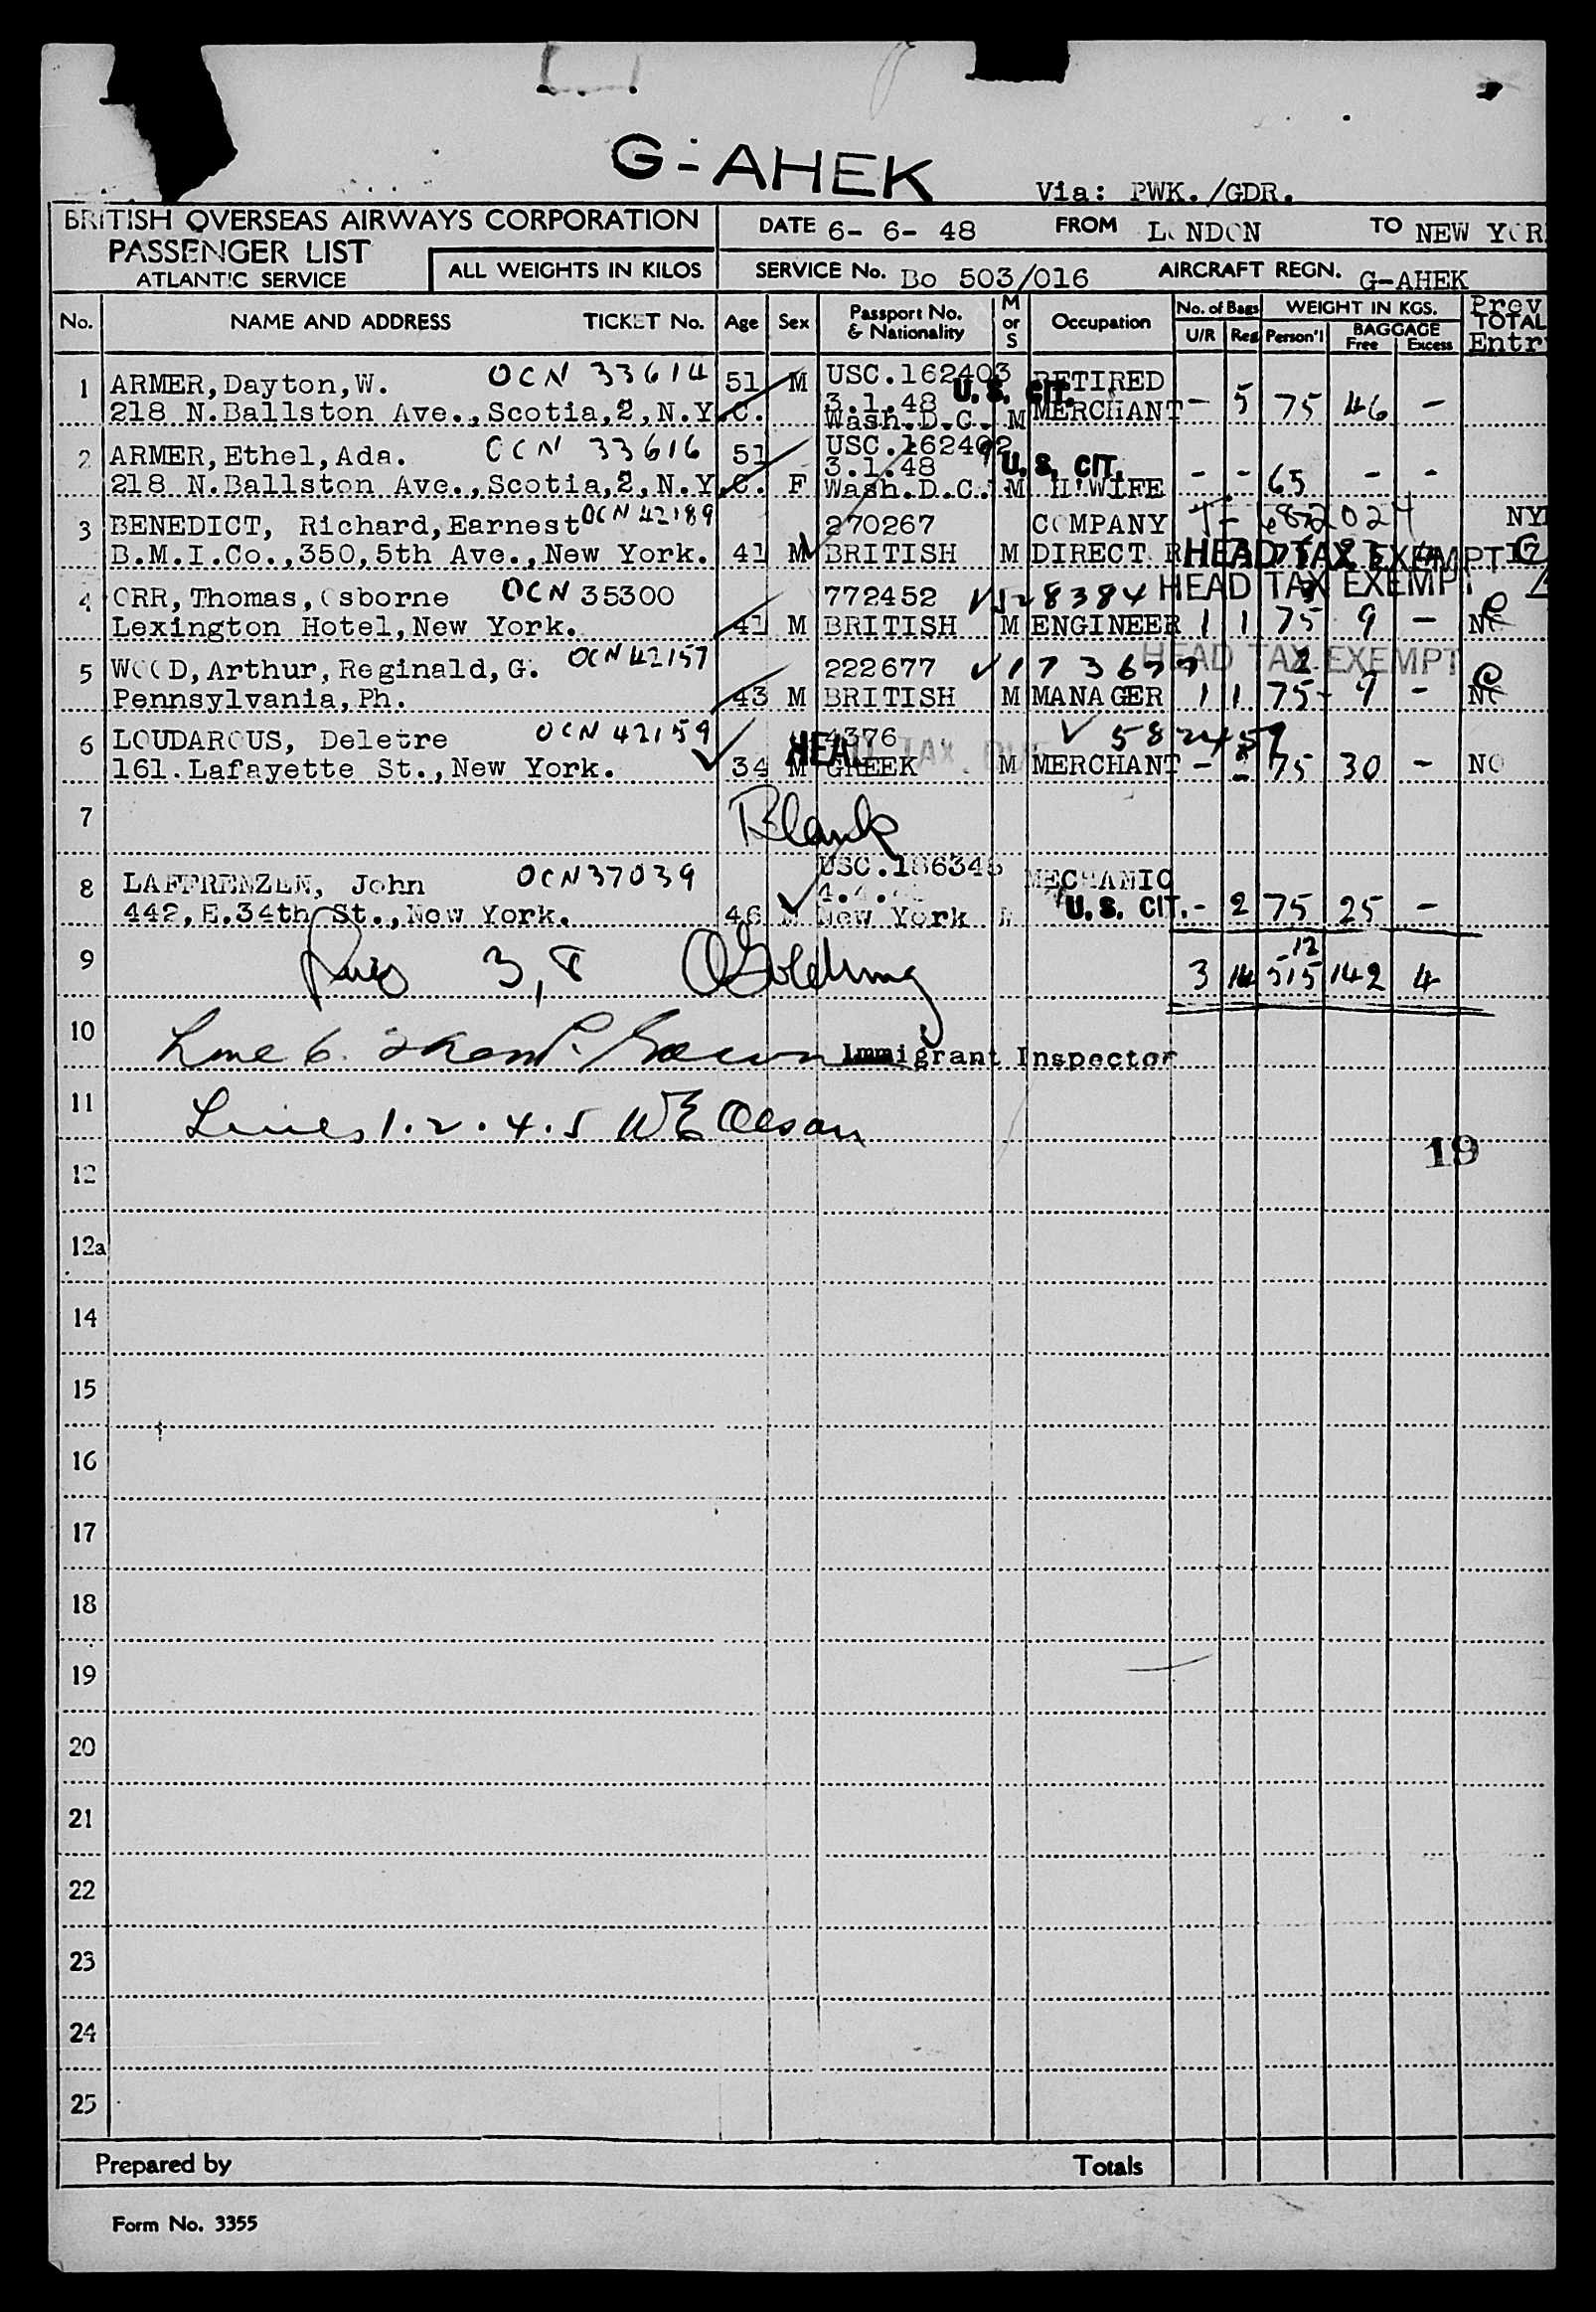 G-AHEK
Via: PWK./GDR.
BRITISH OVERSEAS AIRWAYS CORPORATION
PASSENGER LIST
ATLANTIC SERVICE
ALL WEIGHTS IN KILOS
DATE 6- 6- 48 FROM LONDON TO NEW YOR
SERVICE No. Bo 503/016 AIRCRAFT REGN. G-AHEK
No. NAME AND ADDRESS TICKET No. Age Sex Passport No. & Nationality M or S Occupation No. of Bags U/R Reg WEIGHT IN KGS. Person'l BAGGAGE Free Excess Prev TOTAL Entr
1 ARMER,Dayton,W. OCN 33614 51 M USC.162403 RETIRED
218 N.Ballston Ave.,Scotia,2,N.Y.C. 3.1.48 Wash.D.C. M U.S. CIT. MERCHANT - 5 75 46 -
2 ARMER,Ethel,Ada. OCN 33616 51 USC.162402 3.1.48 U.S. CIT.
218 N.Ballston Ave.,Scotia,2,N.Y.C. F Wash.D.C. M H'WIFE - - 65 - -
3 BENEDICT, Richard,Earnest OCN 42189 270267 COMPANY NY
B.M.I.Co.,350,5th Ave.,New York. 41 M BRITISH M DIRECT R HEAD TAX EXEMPT
4 ORR,Thomas,Osborne OCN 35300 772452 HEAD TAX EXEMPT
Lexington Hotel,New York. 41 M BRITISH M ENGINEER 1 1 75 9 -
5 WOOD,Arthur,Reginald,G. OCN 42157 222677 HEAD TAX EXEMPT
Pennsylvania,Ph. 43 M BRITISH M MANAGER 1 1 75 9 -
6 LOUDAROUS, Deletre OCN 42159 4376 HEAD TAX
161.Lafayette St.,New York. 34 M GREEK M MERCHANT - 75 30 - NO
7 Blank
8 LAFFRENZEN, John OCN 37039 USC.186345 MECHANIC
442,E.34th St.,New York. 46 M New York M U.S. CIT. - 2 75 25 -
9 3,8 OGolding 3 14 515 12 142 4
10 Line 6. Immigrant Inspector
11 Lines 1.2.4.5 WE Olson
19
12
12a
14
15
16
17
18
19
20
21
22
23
24
25
Prepared by Totals
Form No. 3355